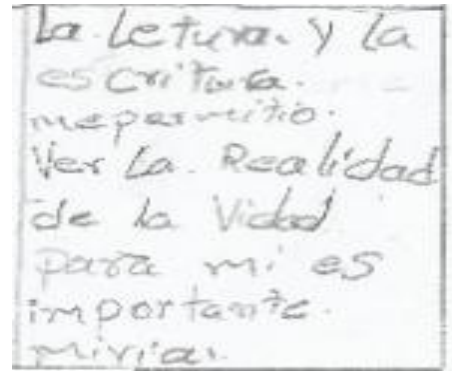 La Letura. y la
escritura.
mepermitio.
Ver La. Realidad
de la Vidad
para mi es
importante.
miriam.